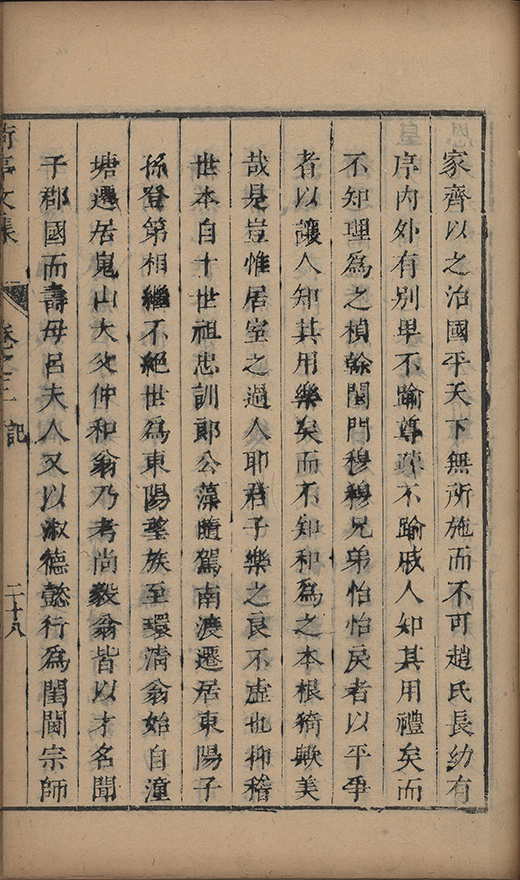 家齊以之治國平天下無所施而不可趙氏長幼有
序內外有別卑不踰尊疎不踰戚人知其用禮矣而
不知理爲之楨榦閨門穆穆兄弟怡怡戾者以平爭
者以讓人知其用樂矣而不知和爲之本根猗歟美
哉是豈惟居室之過人耶君子樂之良不虛也抑稽
世本自十世祖忠訓郎公藻隨駕南渡遷居東陽子
孫登第相繼不絕世爲東陽望族至環清翁始自潼
塘遷居嵬山大父仲和翁乃考尚毅翁皆以才名聞
于郡國而壽母呂夫人又以淑德懿行爲閨閫宗師
亭文集 卷之三 記 二十八